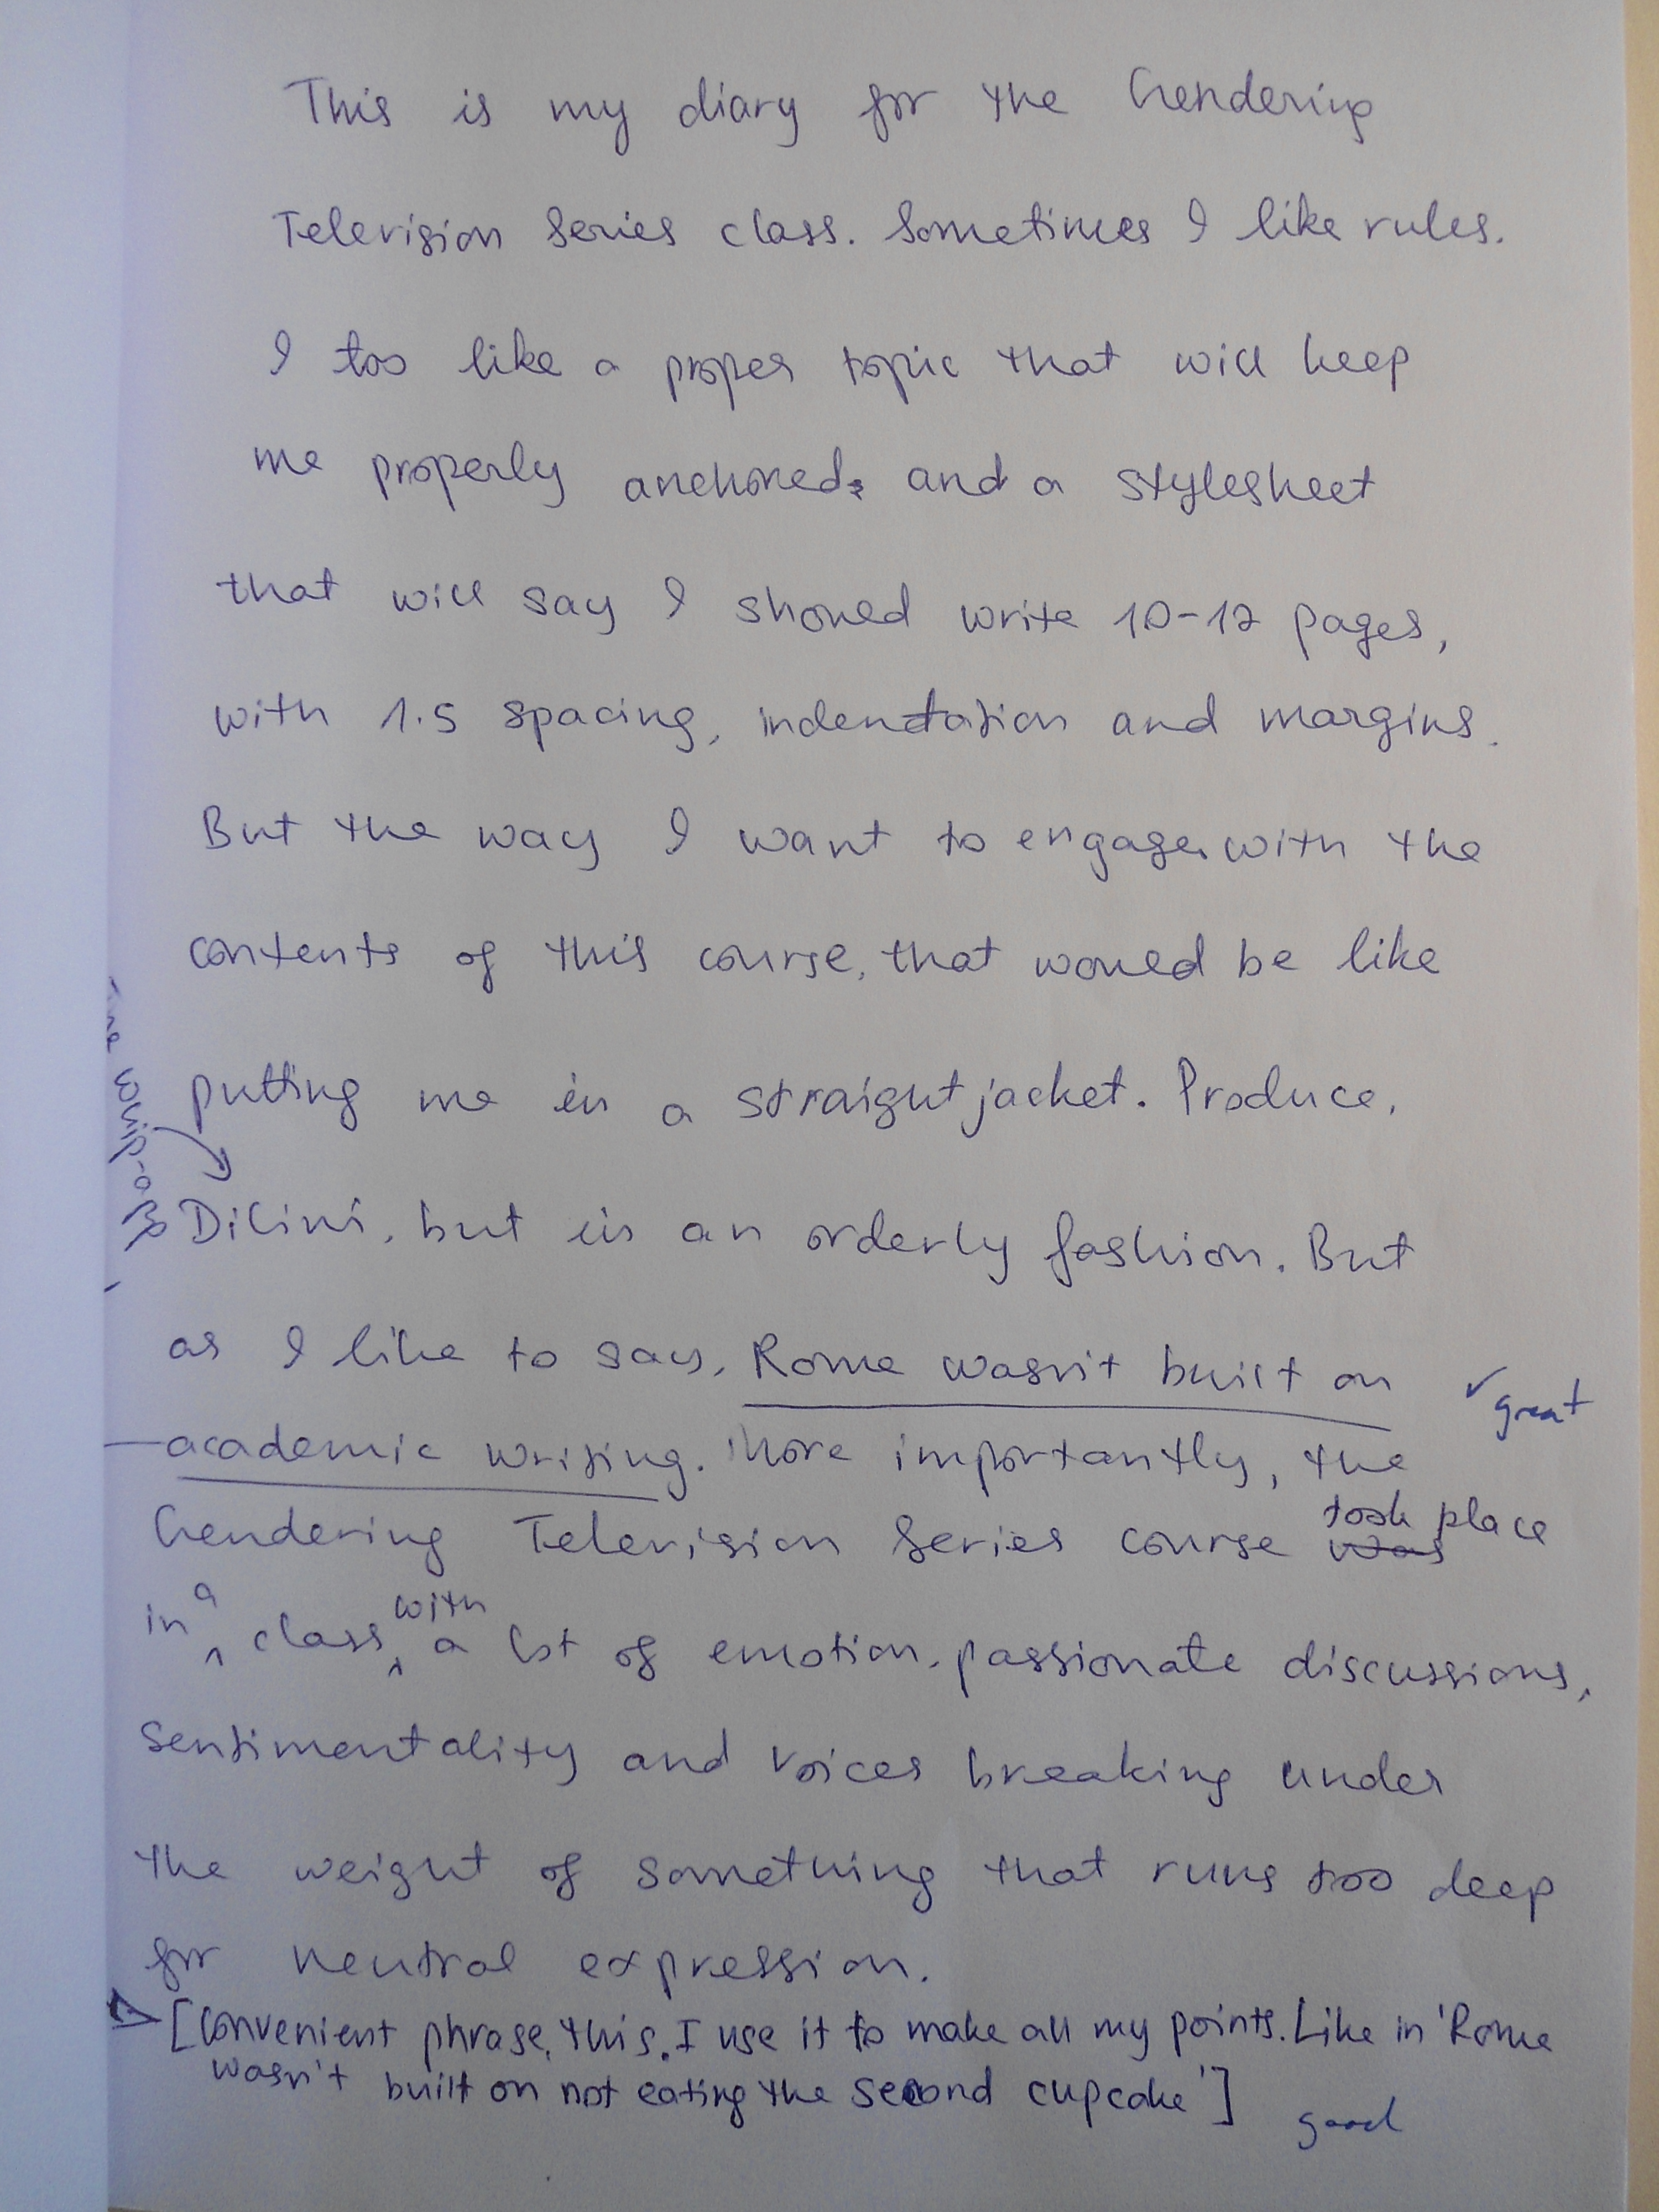 This is my diary for the Gendering
Television Series class. Sometimes I like rules.
I too like a proper topic that will keep
me properly anchored, and a stylesheet
that will say I should write 10-12 pages,
with 1.5 spacing, indentation and margins.
But the way I want to engage with the
contents of this course, that would be like
putting me in a straightjacket. Produce,
Dilini, but in an orderly fashion. But
as I like to say, Rome wasn't built on
great
academic writing. More importantly, the
Gendering Television Series course was took place
in a class, with a lot of emotion, passionate discussions,
sentimentality and voices breaking under
the weight of something that runs too deep
for neutral expression.
[Convenient phrase, this. I use it to make all my points. Like in 'Rome
wasn't built on not eating the second cupcake']
good